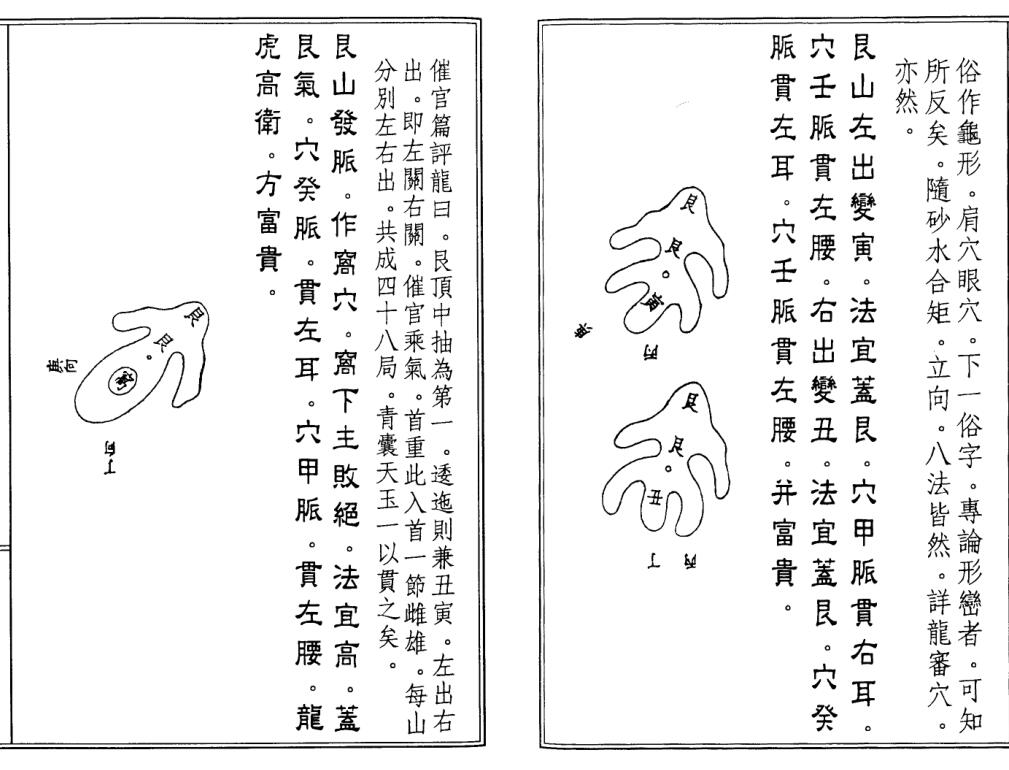 俗作龜形。肩穴眼穴。下一俗字。專論形巒者。可知
所反矣。隨砂水合矩。立向。八法皆然。詳龍審穴。
亦然。
艮山左出變寅。法宜蓋艮。穴甲脈貫右耳。
穴壬脈貫左腰。右出變丑。法宜蓋艮。穴癸
脈貫左耳。穴壬脈貫左腰。并富貴。
艮
艮
寅
丙
艮
艮
丑
丙
丁
催官篇評龍曰。艮頂中抽為第一。逶迤則兼丑寅。左出右
出。即左關右關。催官乘氣。首重此入首一節雌雄。每山
分別左右出。共成四十八局。青囊天玉一以貫之矣。
艮山發脈。作窩穴。窩下主敗絕。法宜高。蓋
艮氣。穴癸脈。貫左耳。穴甲脈。貫左腰。龍
虎高衛。方富貴。
艮
艮
窩
丁向